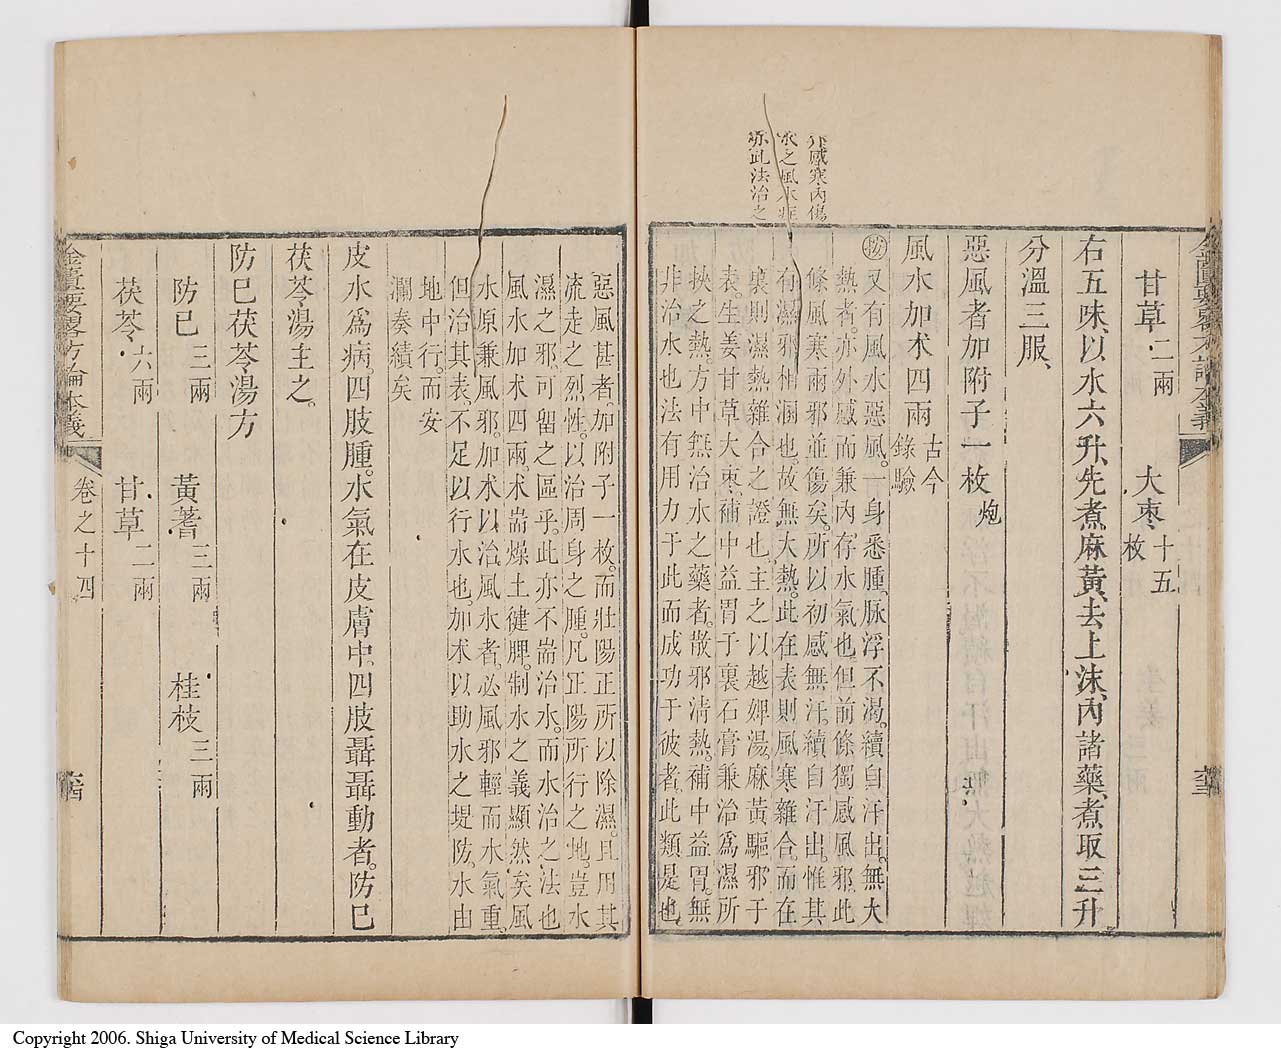 甘草二兩　大棗十五枚
右五味、以水六升、先煮麻黃、去上沫、內諸藥、煮取三升
分溫三服、
惡風者加附子一枚炮
風水加术四兩古今錄驗
按又有風水惡風。一身悉腫。脉浮不渴。續自汗出。無大
熱者。亦外感而兼內存水氣也。但前條獨感風邪。此
條風寒兩邪並傷矣。所以初感無汗。續自汗出。惟其
有濕邪相溷也。故無大熱。此在表則風寒雜合。而在
裏則濕熱雜合之證也。主之以越婢湯。麻黃驅邪于
表。生姜甘草大棗。補中益胃于裏。石膏兼治爲濕所
挾之熱。方中無治水之藥者。散邪清熱。補中益胃。無
非治水也。法有用力于此而成功于彼者。此類是也。
外感寒內傷
水之風水症
亦此法治之
惡風甚者。加附子一枚。而壯陽正所以除濕。且用其
流走之烈性。以治周身之腫。凡正陽所行之地。豈水
濕之邪。可留之區乎。此亦不耑治水。而水治之法也
風水加术四兩。术耑燥土健脾。制水之義顯然矣。風
水原兼風邪。加术以治風水者。必風邪輕而水氣重。
但治其表。不足以行水也。加术以助水之堤防。水由
地中行。而安
瀾奏績矣
皮水爲病。四肢腫。水氣在皮膚中。四肢聶聶動者。防己
茯苓湯主之。
防己茯苓湯方
防己三兩　黃蓍三兩　桂枝三兩
茯苓六兩　甘草二兩
金匱要畧方論本義
卷之十四